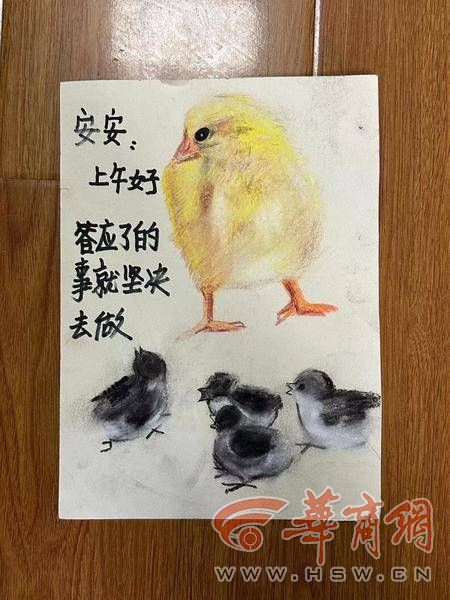 安安：
上午好
答应了的
事就坚决
去做
華商網
WWW.HSW.CN